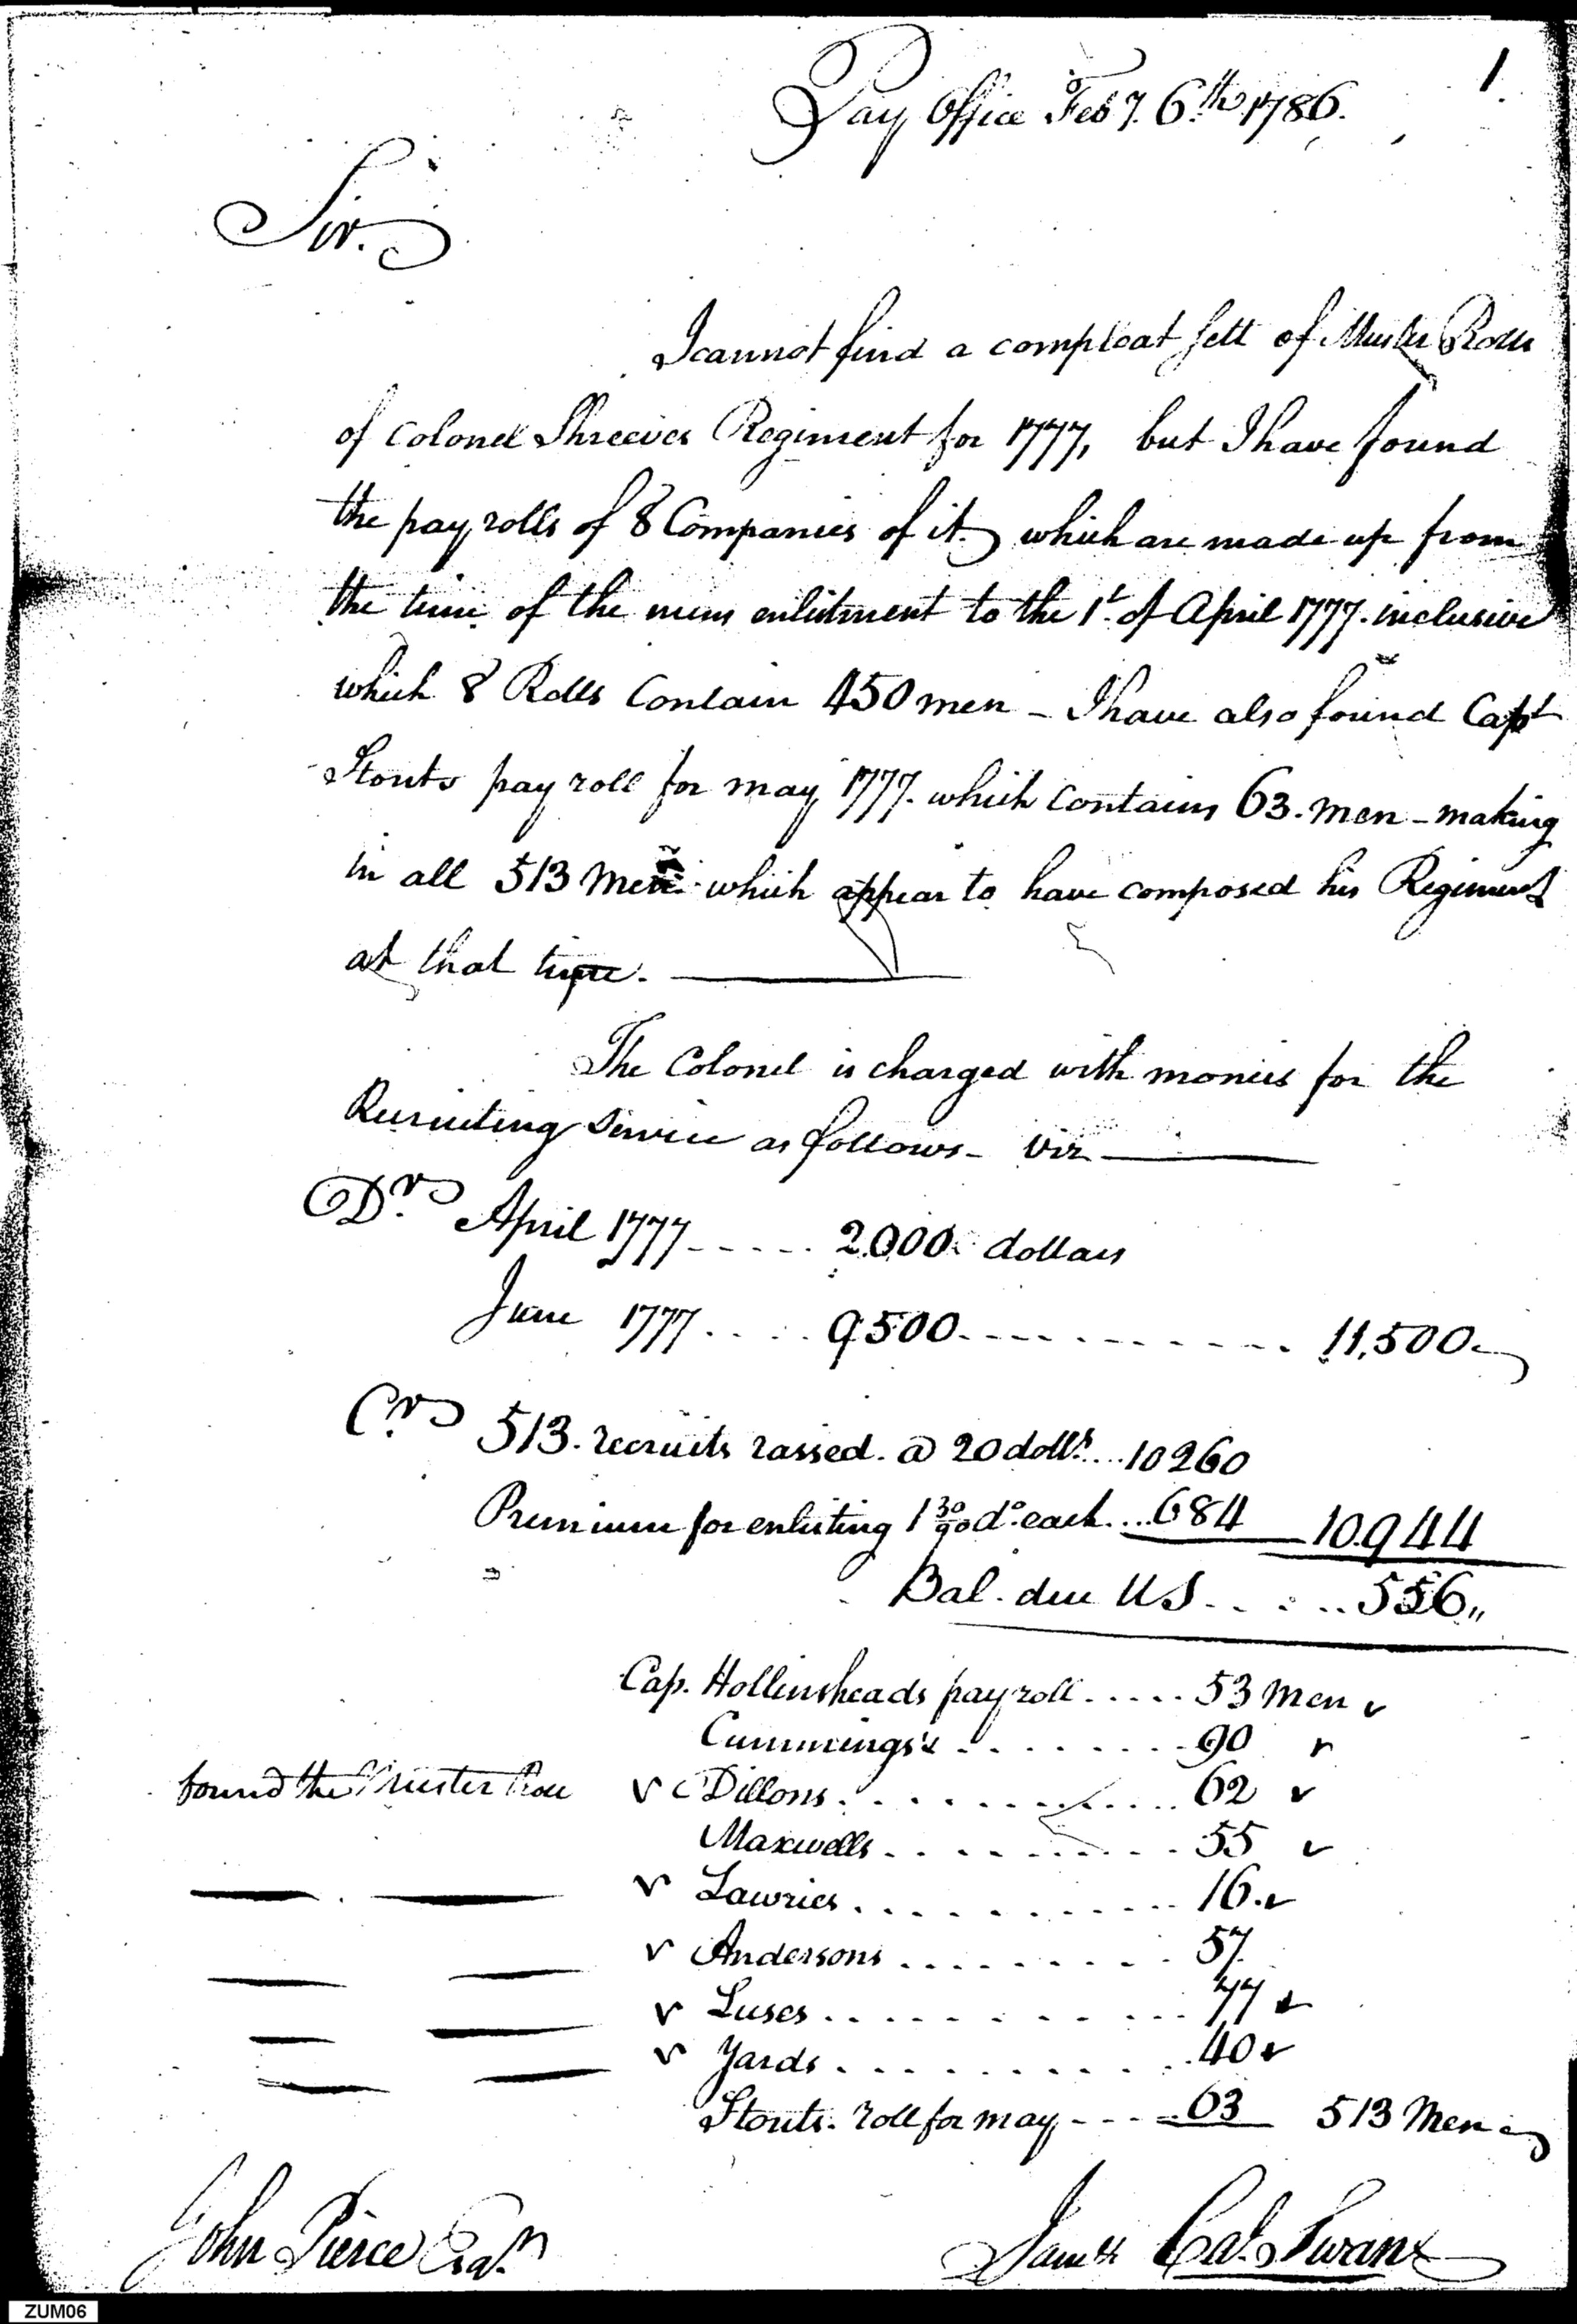 1
Pay Office Feby. 6th 1786.
Sir.
I cannot find a compleat sett of Muster Rolls
of Colonel Shreeves Regiment for 1777, but I have found
the pay rolls of 8 Companies of it which are made up from
the time of the mens enlistment to the 1t. of April 1777. inclusive
which 8 Rolls Contain 450 men - I have also found Capt
Stouts pay roll for may 1777. which contains 63. men - making
in all 513 Men which appear to have composed his Regiment
at that time.
The Colonel is charged with monies for the
Recruiting Service as follows - viz
Dr. April 1777 ..... 2000. dollars
June 1777 .... 9500 .......... 11,500
Cr. 513. recruits rassed. @ 20 dolls. ... 10260
Premium for enlisting 1 30/90 do. each ... 684 10.944
Bal. due US ..... 556,,
Cap. Hollinsheads pay roll ..... 53 Men v
Cummings's ........ 90 v
found the Muster Roll v Dillons ........... 62 v
Maxwells .......... 55 v
— . — v Lawries ............ 16. v
— — v Andersons ........ 57.
— — v Luses ........... 77 v
— — v Yards .......... 40 v
Stouts. roll for may - - - - 63 513 Men
John Pierce Esqr.
James Cal. Swan
ZUM06